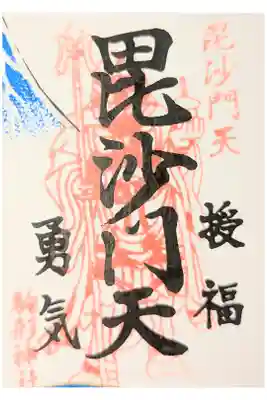 毘沙門天
授福
毘沙門天
勇気